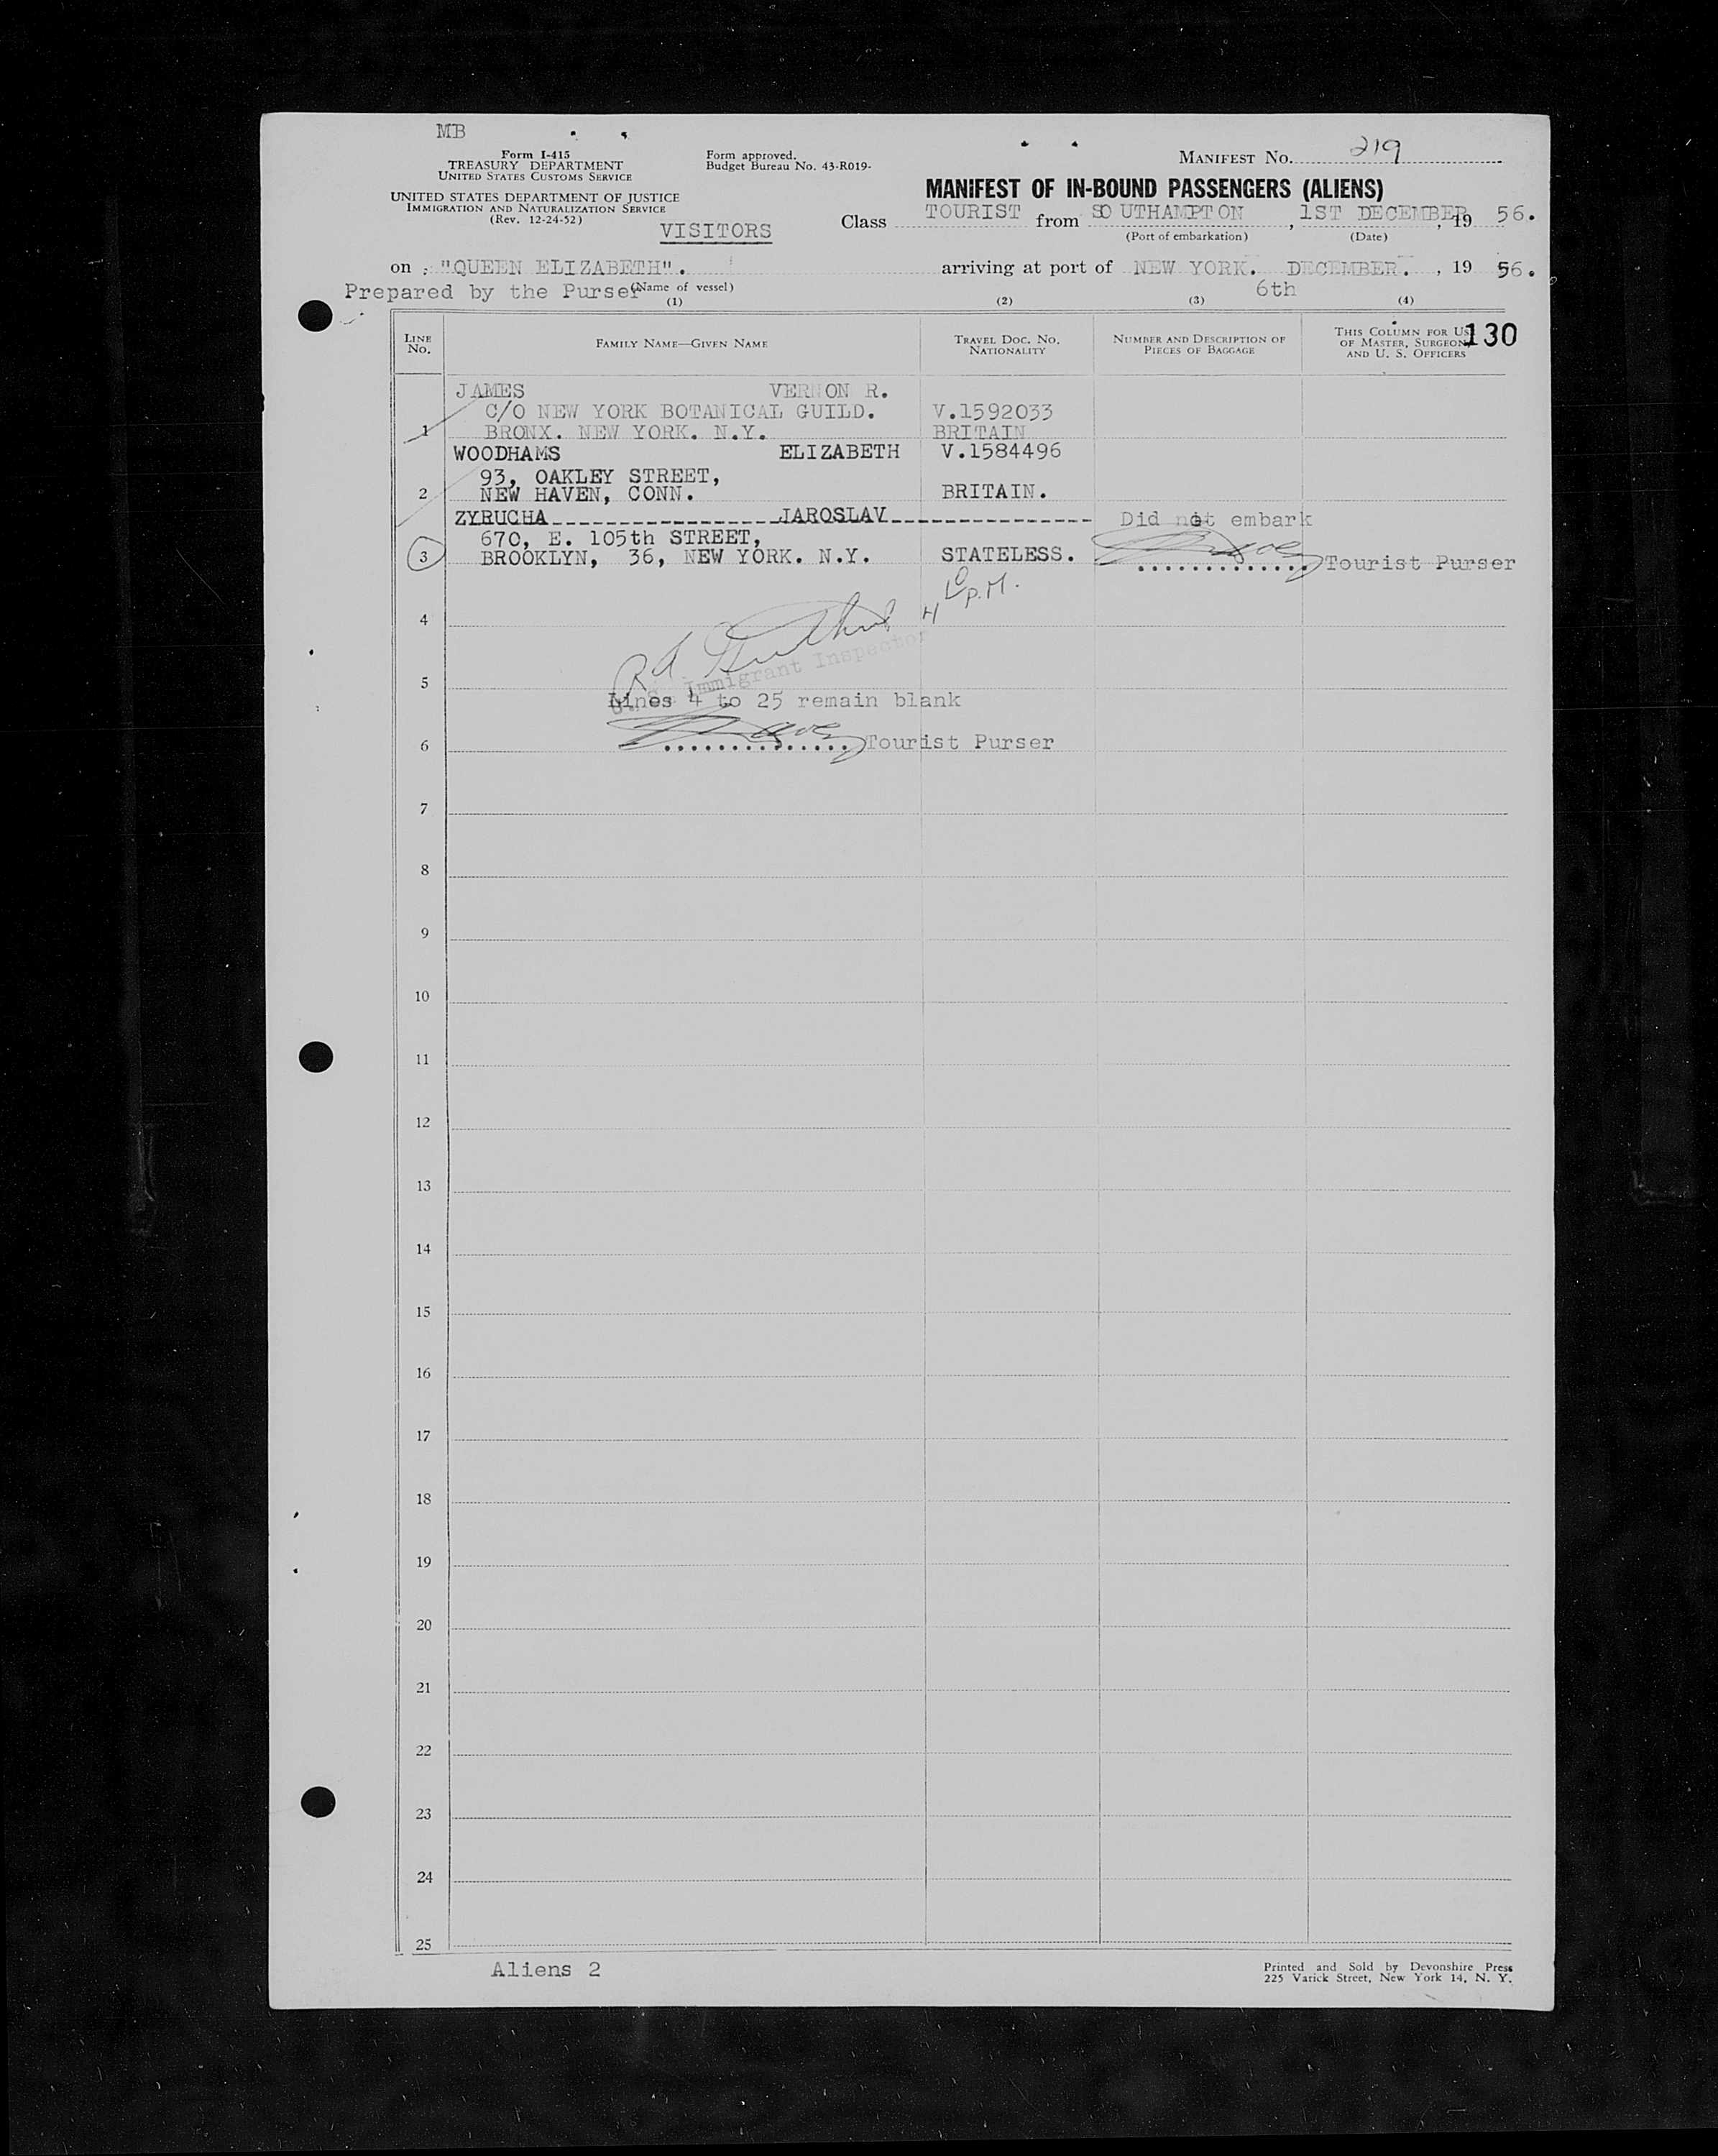 MB
Form I-415
TREASURY DEPARTMENT
UNITED STATES CUSTOMS SERVICE
Form approved.
Budget Bureau No. 43-R019-
MANIFEST No. 219
UNITED STATES DEPARTMENT OF JUSTICE
IMMIGRATION AND NATURALIZATION SERVICE
(Rev. 12-24-52)
MANIFEST OF IN-BOUND PASSENGERS (ALIENS)
VISITORS
Class TOURIST from SOUTHAMPTON, 1ST DECEMBER, 19 56.
(Port of embarkation) (Date)
on "QUEEN ELIZABETH". arriving at port of NEW YORK. DECEMBER. , 19 56.
Prepared by the Purser (Name of vessel) 6th
(1) (2) (3) (4)
LINE No. FAMILY NAME—GIVEN NAME TRAVEL DOC. No. NATIONALITY NUMBER AND DESCRIPTION OF PIECES OF BAGGAGE THIS COLUMN FOR USE OF MASTER, SURGEON, AND U. S. OFFICERS 130
JAMES VERNON R.
C/O NEW YORK BOTANICAL GUILD. V.1592033
1 BRONX. NEW YORK. N.Y. BRITAIN
WOODHAMS ELIZABETH V.1584496
93, OAKLEY STREET,
2 NEW HAVEN, CONN. BRITAIN.
ZYRUCHA JAROSLAV Did not embark
670, E. 105th STREET,
3 BROOKLYN, 36, NEW YORK. N.Y. STATELESS. Tourist Purser
P.M.
4
Immigrant Inspector
5
Lines 4 to 25 remain blank
6 Tourist Purser
7
8
9
10
11
12
13
14
15
16
17
18
19
20
21
22
23
24
25
Aliens 2
Printed and Sold by Devonshire Press
225 Varick Street, New York 14, N. Y.